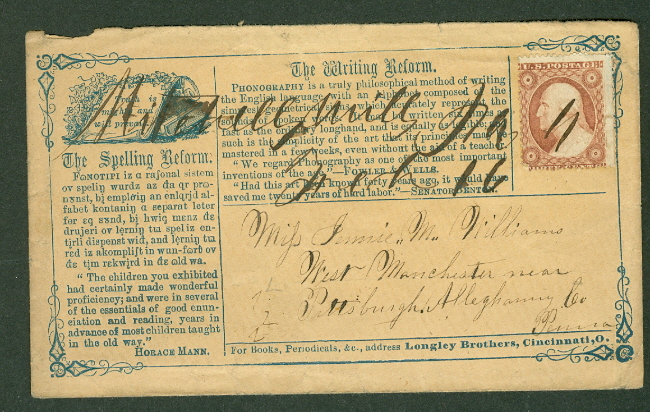 Truth is
mighty and
will prevail
The Spelling Reform:
FONOTIPI iz a
ov speliŋ wurdz az da
bj emploiŋ an
fabet kontaniŋ a separat leter
for
drujeri ov lerniŋ tu spel iz en-
tirli dispenst wid, and lerniŋ tu
red iz akompliʃt in
de tjm rekwjrd in de old wa.
" The children you exhibited
had certainly made wonderful
proficiency; and were in several
of the essentials of good enun-
ciation and reading, years in
advance of most children taught
in the old way."
HORACE MANN.
The Writing Reform.
PHONOGRAPHY is a truly philosophical method of writing
the English language with an alphabet composed of the
simplest geometrical signs which accurately represent the
sounds of spoken words. It may be written six times as
fast as the ordinary longhand, and is equally legible;
such is the simplicity of the art that its principles may be
mastered in a few weeks, even without the aid of a teacher.
"We regard Phonography as one of the most important
inventions of the age."—FOWLER & WELLS.
"Had this art been known forty years ago, it would have
saved me twenty years of hard labor."—SENATOR BENTON.
Oct 10
U.S. POSTAGE
Miss Jennie M. Williams
West Manchester near
Pittsburgh, Alleghany Co
Penna
For Books, Periodicals, &c., address Longley Brothers, Cincinnati, O.